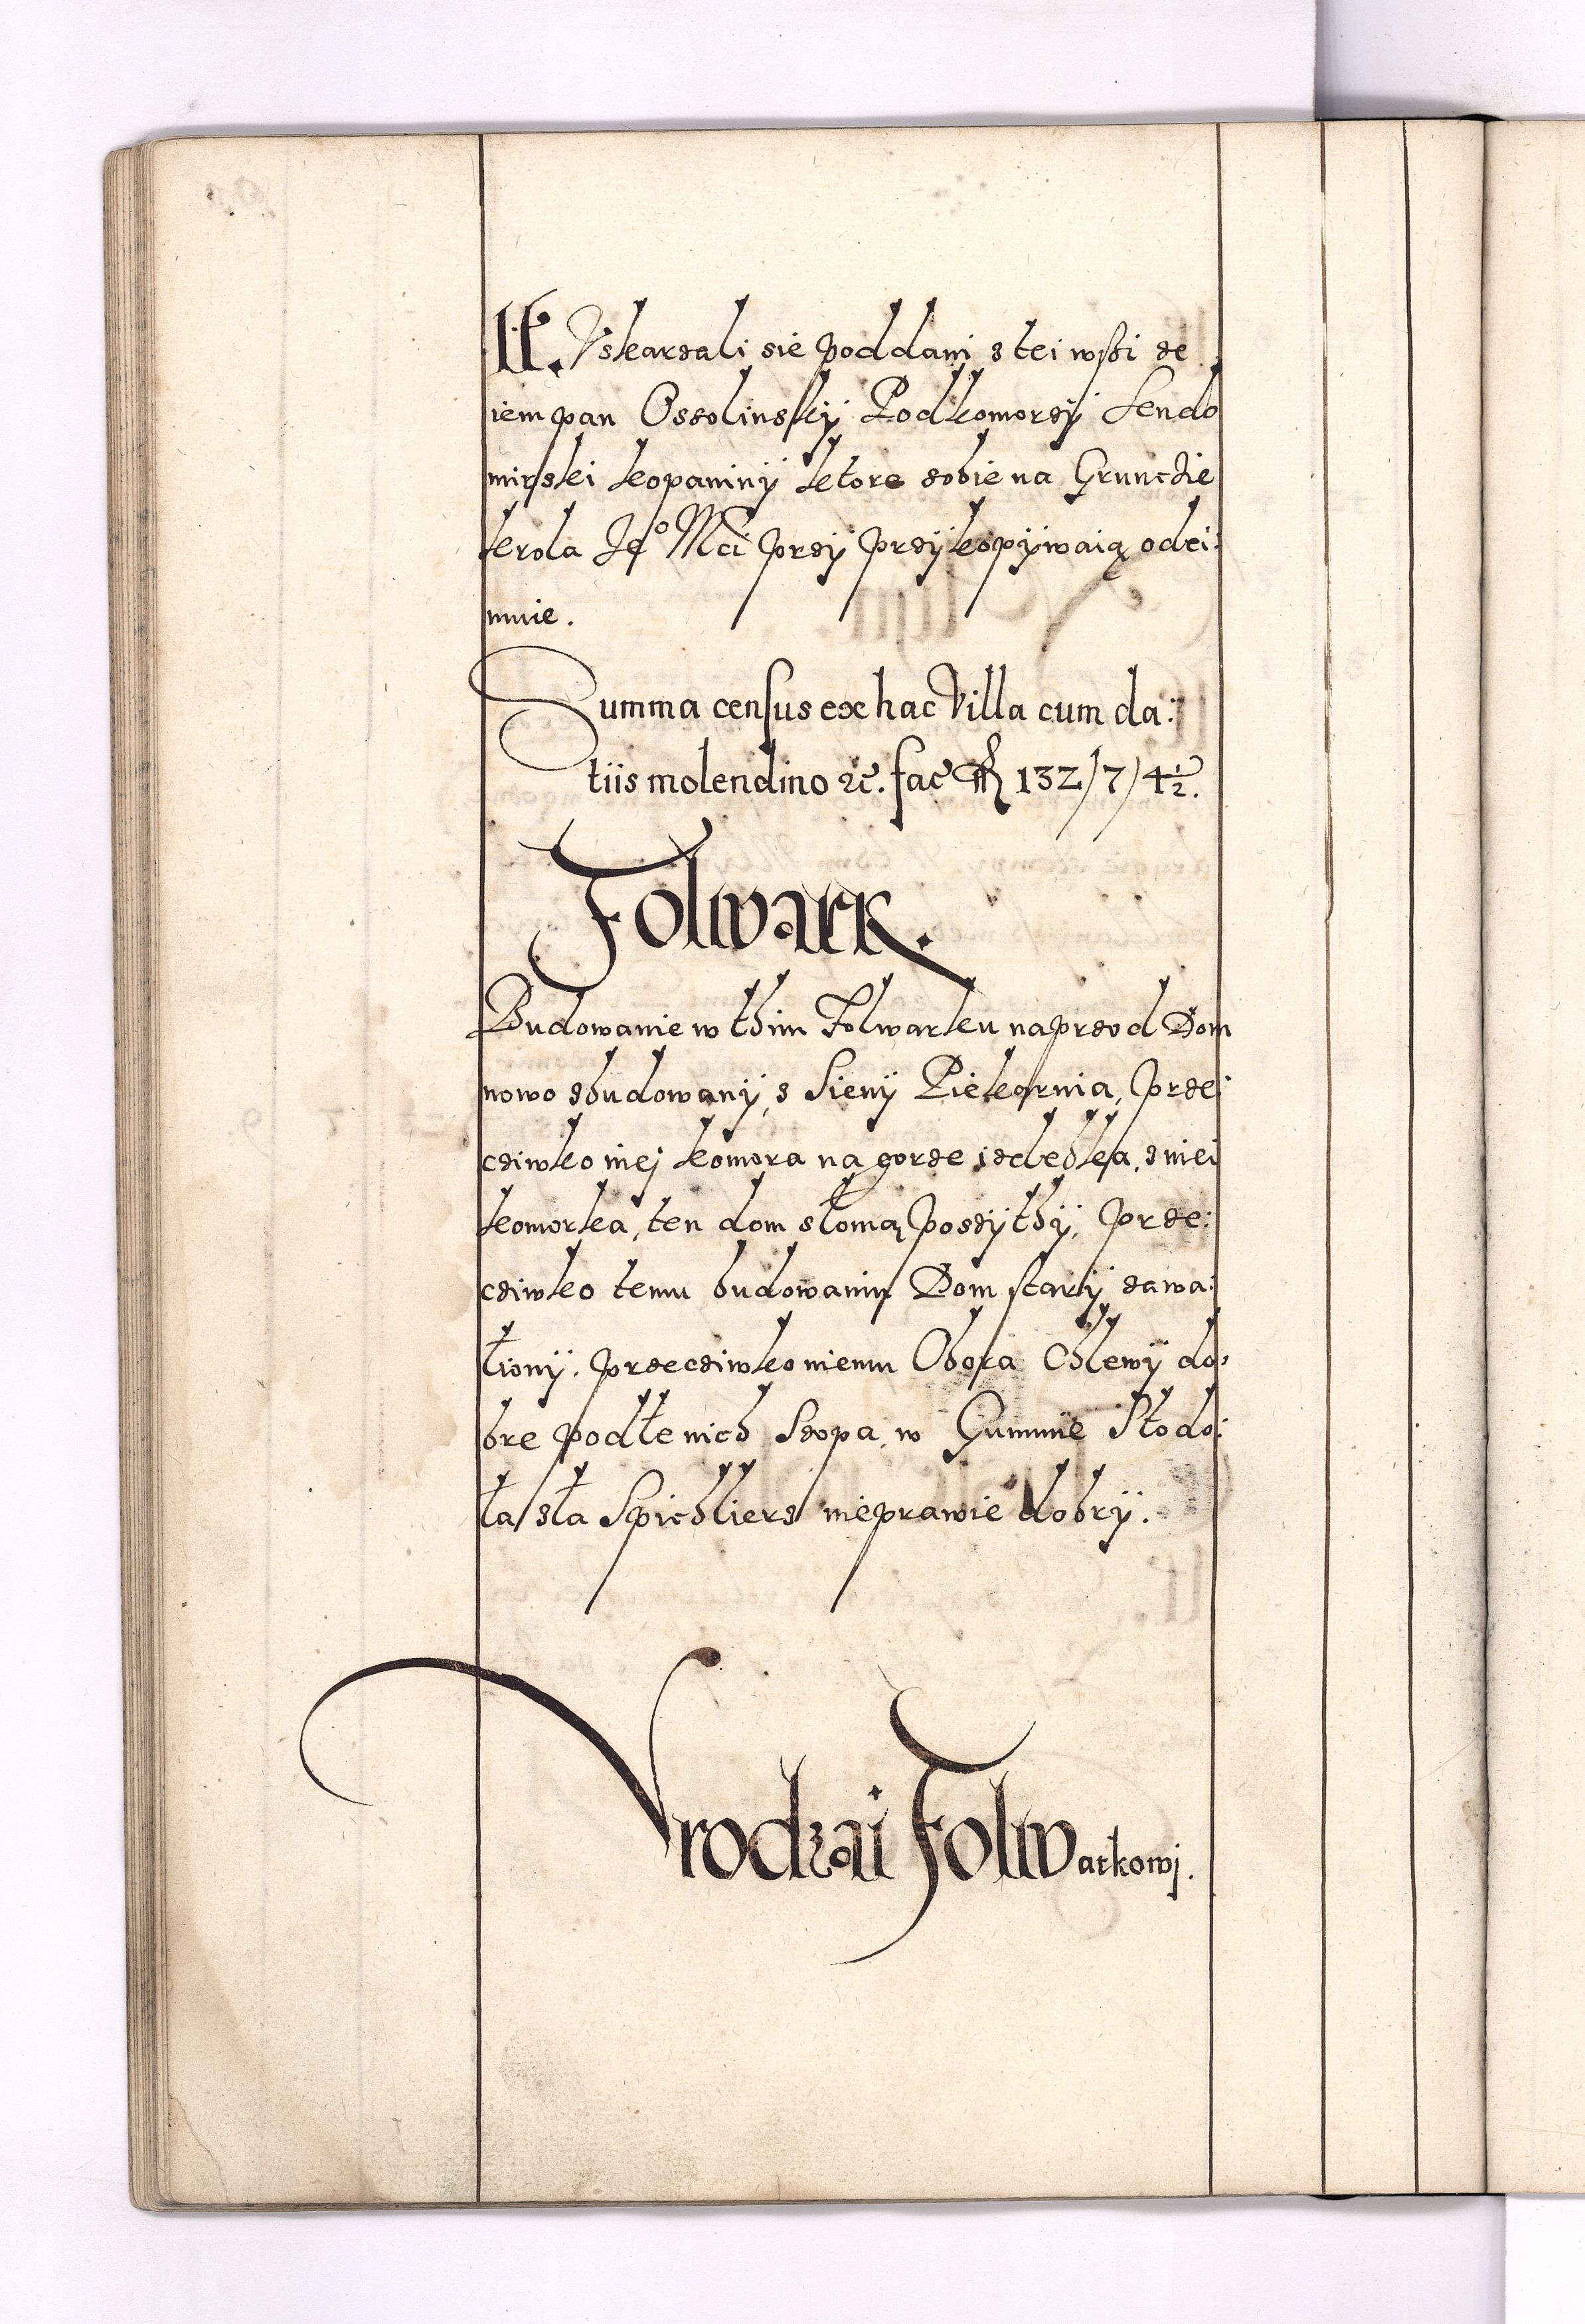 It. Vskarzali sie poddani z tei wsi ze
iem pan Ossolinskÿ Podkomorzÿ Sendo
mirski kopaninÿ ktore sobie na Gruncie
krola Je͞o Mci przÿ przÿkopÿwaią odei:
muie.
Summa census ex hac Villa cum da:
tiis molendino etc. fac ff 132/7/4½.
Folwark.
Budowanie w thim Folwarku naprzod Dom
nowo zbudowanÿ, z Sienÿ Piekarnia, prze:
cziwko niej komora na gorze izdebka, z niei
komorka, ten dom słomą poszÿthÿ, prze:
cziwko temu budowaniu Dom starÿ zawa:
lionÿ. przecziwko niemu Obora Chlewÿ do:
bre podle nich Szopa, w Gumnie Stodo:
ła zła Spichlierz nieprawie dobrÿ.
Vrodzai Folwarkowj.